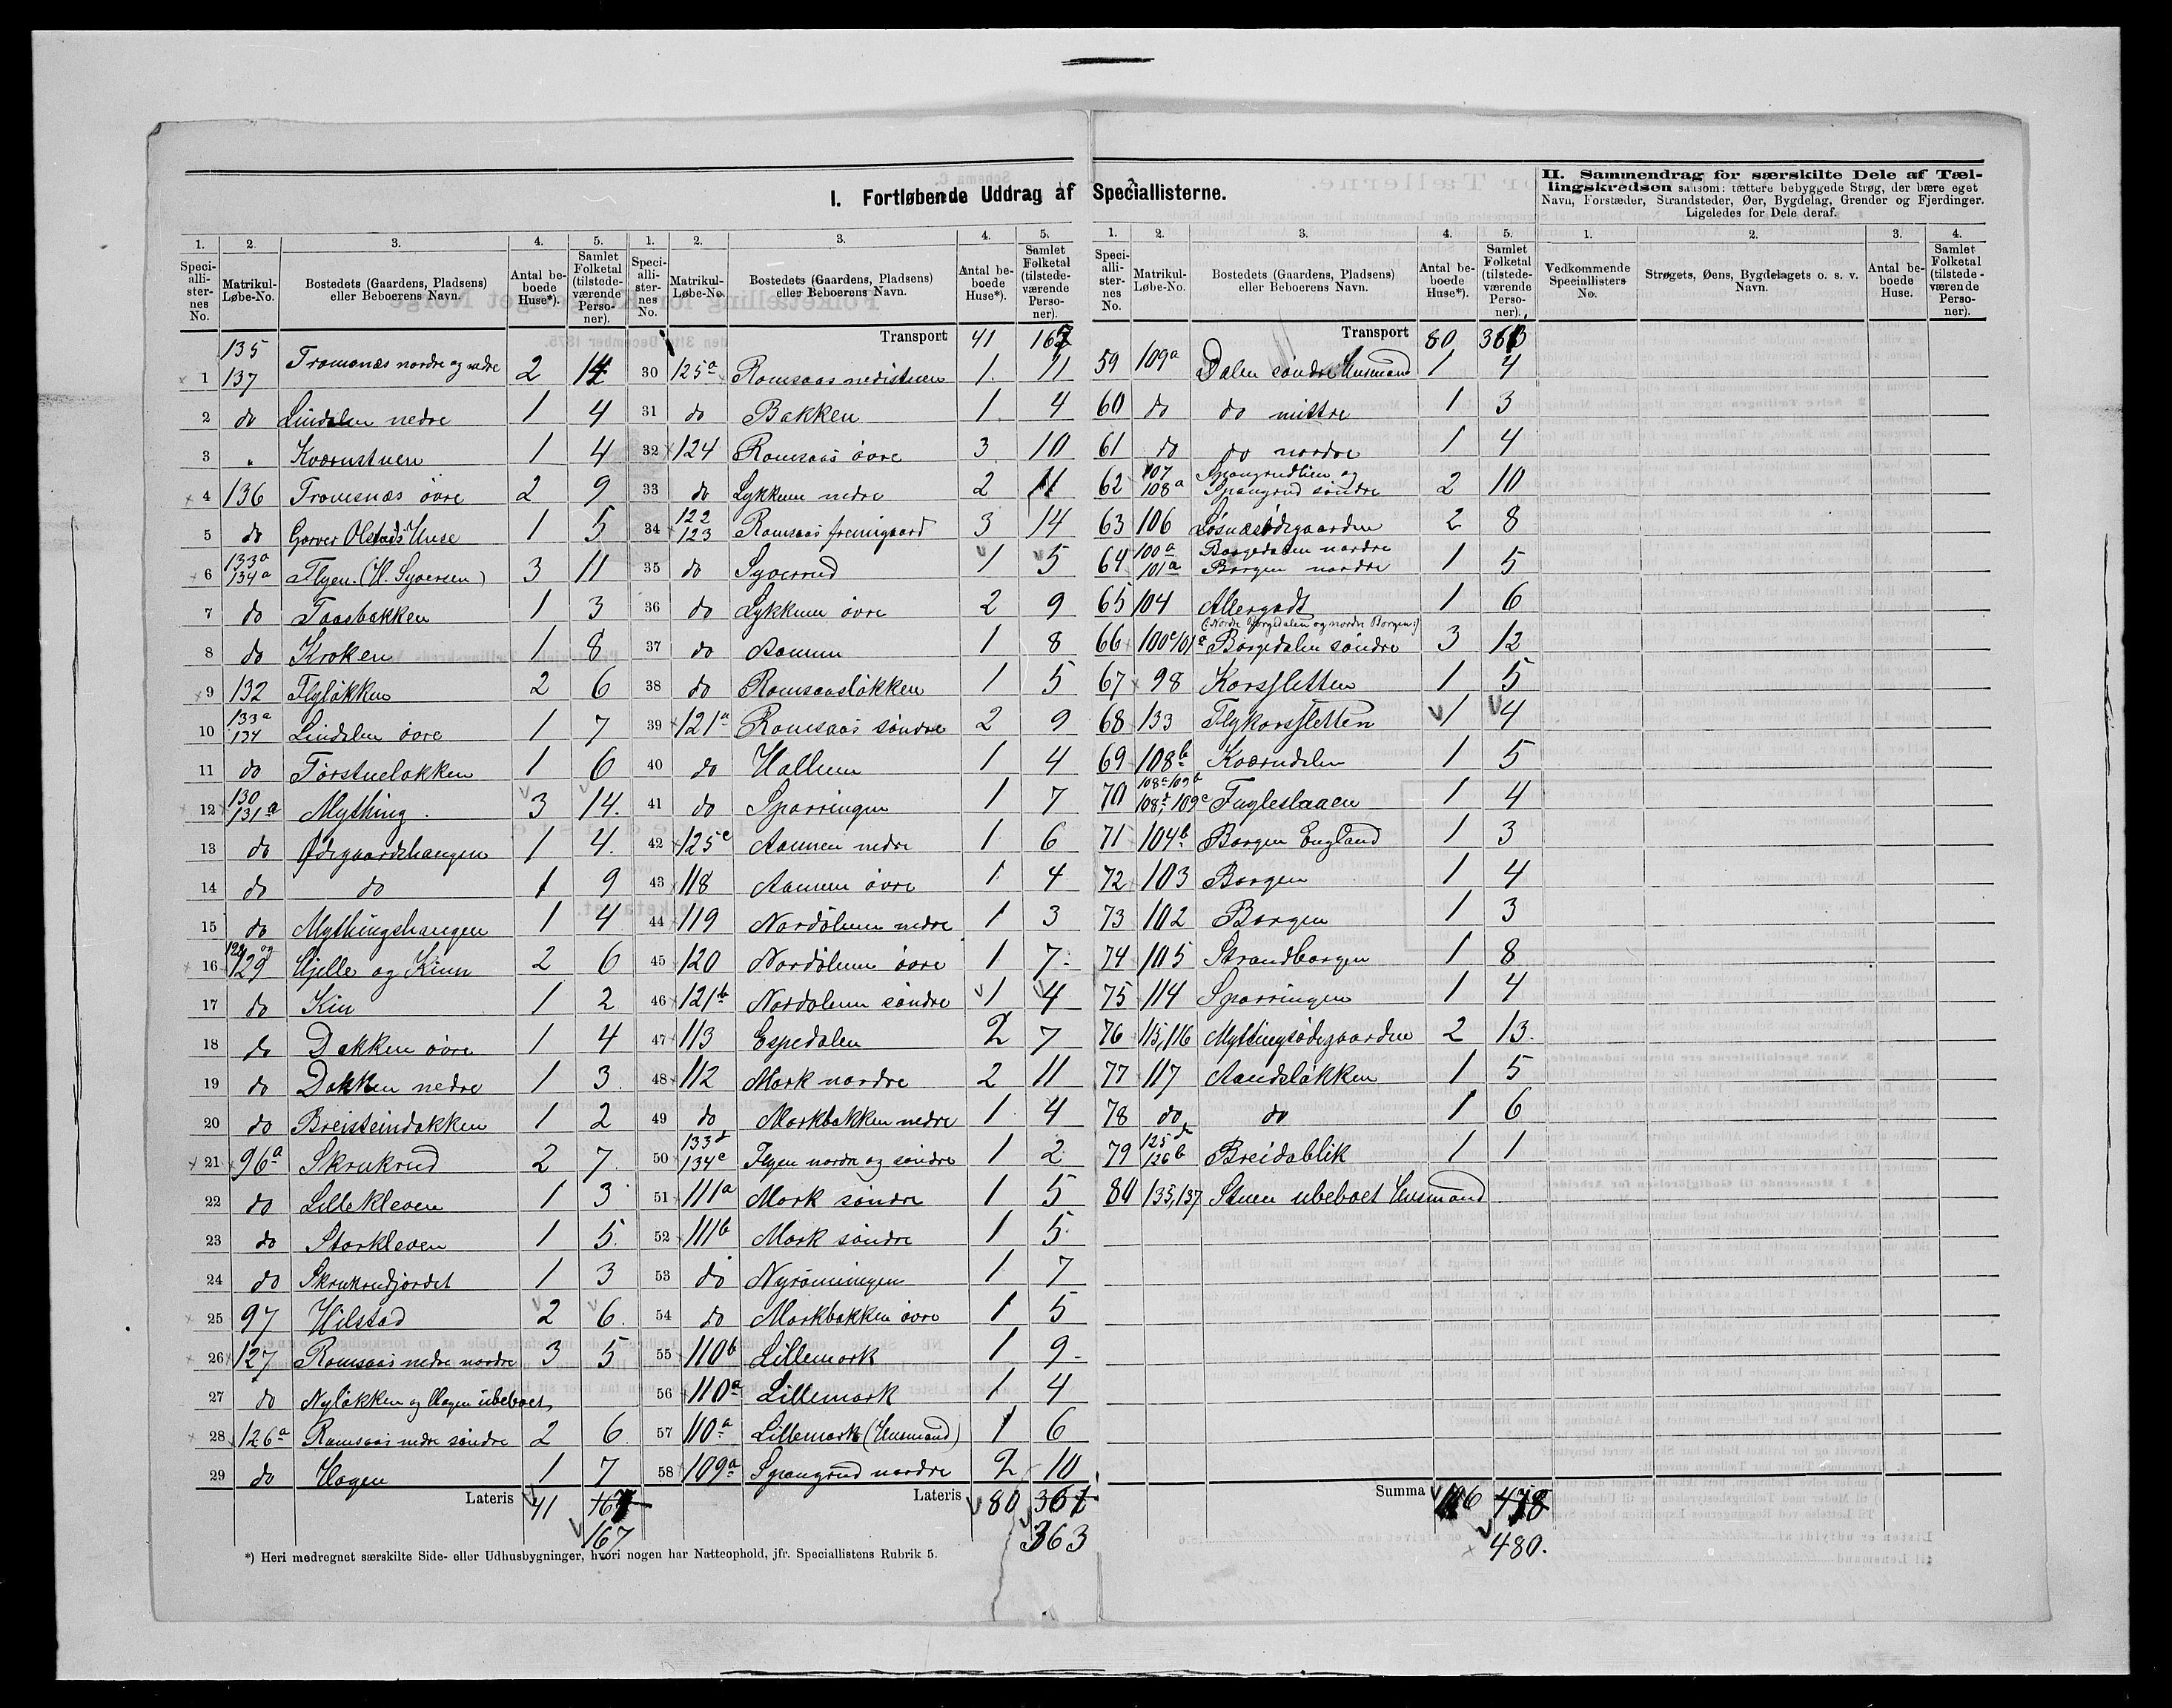 I. Fortløbende Uddrag af Speciallisterne.
II. Sammendrag for særskilte Dele af Tællingskredsen saasom: tættere bebyggede Strøg, der bære eget Navn, Forstæder, Strandsteder, Øer, Bygdelag, Grender og Fjerdinger. Ligeledes for Dele deraf.
1. 2. 3. 4. 5.
Speciallisternes No. Matrikul-Løbe-No. Bostedets (Gaardens, Pladsens) eller Beboerens Navn. Antal beboede Huse*). Samlet Folketal (tilstedeværende Personer).
135
1 137 Tromsnæs nordre og nedre 2 14
2 do Lindalen nedre 1 4
3 " Kværnstuen 1 4
4 136 Tromsnæs øvre 2 9
5 do Garver Olstads Huse 1 5
6 133a 134a Flyen (H. Syversen) 3 11
7 do Faasbakken 1 3
8 do Kroken 1 8
9 132 Flyløkken 2 6
10 133a 134 Lindalen øvre 1 7
11 do Tørstueløkken 1 6
12 130 131a Mything. 3 14.
13 do Ødegaardshaugen 1 4.
14 do do 1 9
15 do Mythingshaugen 1 4
16 og 129 Hjelle og Kinn 2 6
17 do Kin 1 2
18 do Dokken øvre 1 4
19 do Dokken nedre 1 3
20 do Breisteindokken 1 2
21 96a Skrukrud 2 7
22 do Lillekleven 1 3
23 do Storkleven 1 5.
24 do Skrukrudjordet 1 3
25 97 Hilstad 2 6
26 127 Romsaas nedre nordre 3 5
27 do Nyløkken og Hagen ubeboet
28 126a Romsaas nedre søndre 2 6
29 do Hagen 1 7
Lateris 41
167
1. 2. 3. 4. 5.
Speciallisternes No. Matrikul-Løbe-No. Bostedets (Gaardens, Pladsens) eller Beboerens Navn. Antal beboede Huse*). Samlet Folketal (tilstedeværende Personer).
Transport 41 167
30 125a Romsaas nedistuen 1 11
31 do Bakken 1 4
32 124 Romsaas øvre 3 10
33 do Lykkum nedre 2 11
34 122 123 Romsaas fremigaard 3 14
35 do Syverrud 1 5
36 do Lykkum øvre 2 9
37 do Aamun 1 8
38 do Romsaasløkken 1 5
39 121a Romsaas søndre 2 9
40 do Hallum 1 4
41 do Sparringen 1 7
42 125c Aamun nedre 1 6
43 118 Aamun øvre 1 4
44 119 Nordølum nedre 1 3
45 120 Nordølum øvre 1 7
46 121b Nordolum søndre 1 4
47 113 Espedalen 2 7
48 112 Mork nordre 2 11
49 do Morkbakken nedre 1 4
50 133d 134c Flyen nordre og søndre 1 2
51 111a Mork søndre 1 5
52 111b Mork søndre 1 5
53 do Nyrønningen 1 7
54 do Morkbakken øvre 1 5
55 110b Lillemork 1 9
56 110a Lillemork 1 4
57 110a Lillemork (Husmand) 1 6
58 109a Spangrud nordre 2 10
Lateris 80 361
363
1. 2. 3. 4. 5.
Speciallisternes No. Matrikul-Løbe-No. Bostedets (Gaardens, Pladsens) eller Beboerens Navn. Antal beboede Huse*). Samlet Folketal (tilstedeværende Personer).
Transport 80 363
59 109a Dalen søndre Husmand 1 4
60 do do mittre 1 3
61 do do nordre 1 4
62 107 108a Spangrudlien og Spangrud søndre 2 10
63 106 Losnæsødegaarden 2 8
64 100a 101a Borgedalen nordre Borgen nordre 1 5
65 104 Allergodt 1 6
(: Nordre Borgdalen og nordre Borgen :)
66 100c 101a Borgedalen søndre 3 12
67 98 Korssletten 1 5
68 133 Flykorssletten 1 4
69 108b Kværndalen 1 5
70 108c 109b 108d, 109c Fugleslaaen 1 4
71 104b Borgen England 1 3
72 103 Borgen 1 4
73 102 Borgen 1 3
74 105 Strandborgen 1 8
75 114 Sparringen 1 4
76 115, 116 Myttingsødegaarden 2 13.
77 117 Aandsløkken 1 5
78 do do 1 6
79 125d 126b Breidablik 1 1
80 135, 137 Stuen ubeboet Husmand
Summa 106 478
480.
1. 2. 3. 4.
Vedkommende Speciallisters No. Strøgets, Øens, Bygdelagets o. s. v. Navn. Antal beboede Huse. Samlet Folketal (tilstedeværende Personer).
*) Heri medregnet særskilte Side- eller Udhusbygninger, hvori nogen har Natteophold, jfr. Speciallistens Rubrik 5.